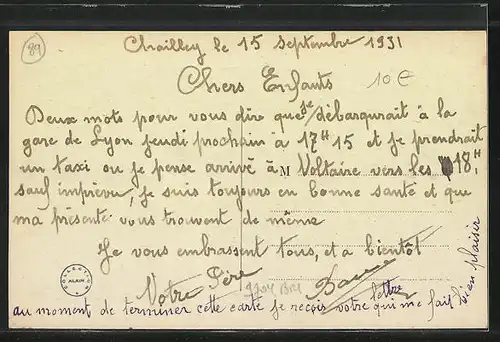 89
Chailley le 15 Septembre 1931
Chers Enfants
10 €
Deux mots pour vous dire que je débarqurait à la
gare de Lyon jeudi prochain à 17H 15 et je prendrait
un taxi ou je pense arrivé à M Voltaire vers les 18H.
sauf imprévu, je suis toujours en bonne santé et que
ma présenté vous trouvent de même
Je vous embrassent tous, et a bientôt
Votre Père
COLLECTION ALAIN
au moment de terminer cette carte je reçois votre lettre qui me fait bien plaisir